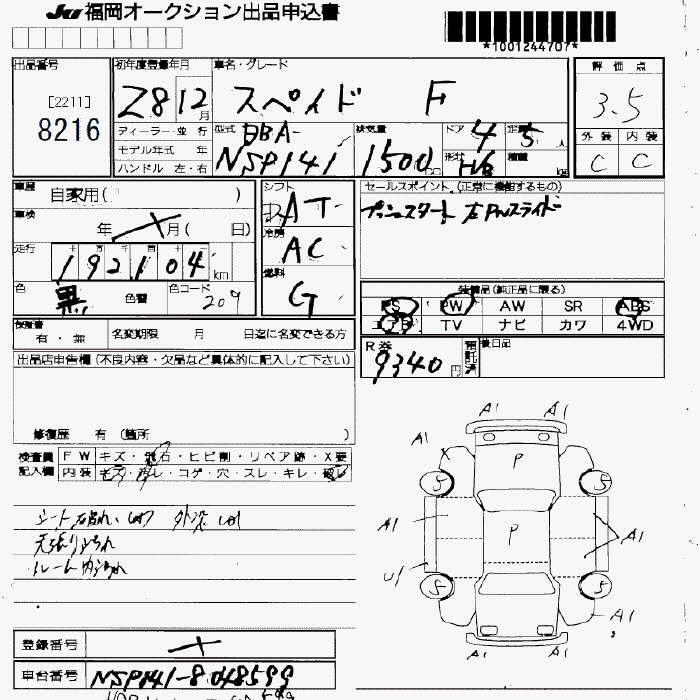 JU 福岡オークション出品申込書
*1001244707*
出品番号 初年度登録年月 車名・グレード 評価点
[2211]
8216
28 12月 スペイド F 3.5
ディーラー・並行 型式 DBA- 排気量 ドア 4 定員 5人 外装 内装
モデル年式 年 NSP141 1500cc 形状 H/B 積載 kg C C
ハンドル 左・右
車歴 自家用( ) シフト AT セールスポイント(正常に機能するもの)
車検 年 月( 日) プッシュスタート 左PWスライド
冷房 AC
走行 192,104 km
燃料 G
色 黒 色替 色コード 209
装備品(純正品に限る)
PS PW AW SR ABS
エアB TV ナビ カワ 4WD
保証書 有・無 名変期限 月 日迄に名変できる方
R券 9340円 預託済 後日品
出品店申告欄(不良内容・欠品など具体的に記入して下さい)
修復歴 有 (箇所 )
検査員 FW キズ・飛石・ヒビ割・リペア跡・X要
記入欄 内装 キズ・汚レ・コゲ・穴・スレ・キレ・破レ
シート破れ、 外装
天張りよごれ
トレーム内よごれ
A1 A1
A1 P
S S
A1 P A1
U1
S S
A1
A1 A1
登録番号
車台番号 NSP141-8048599